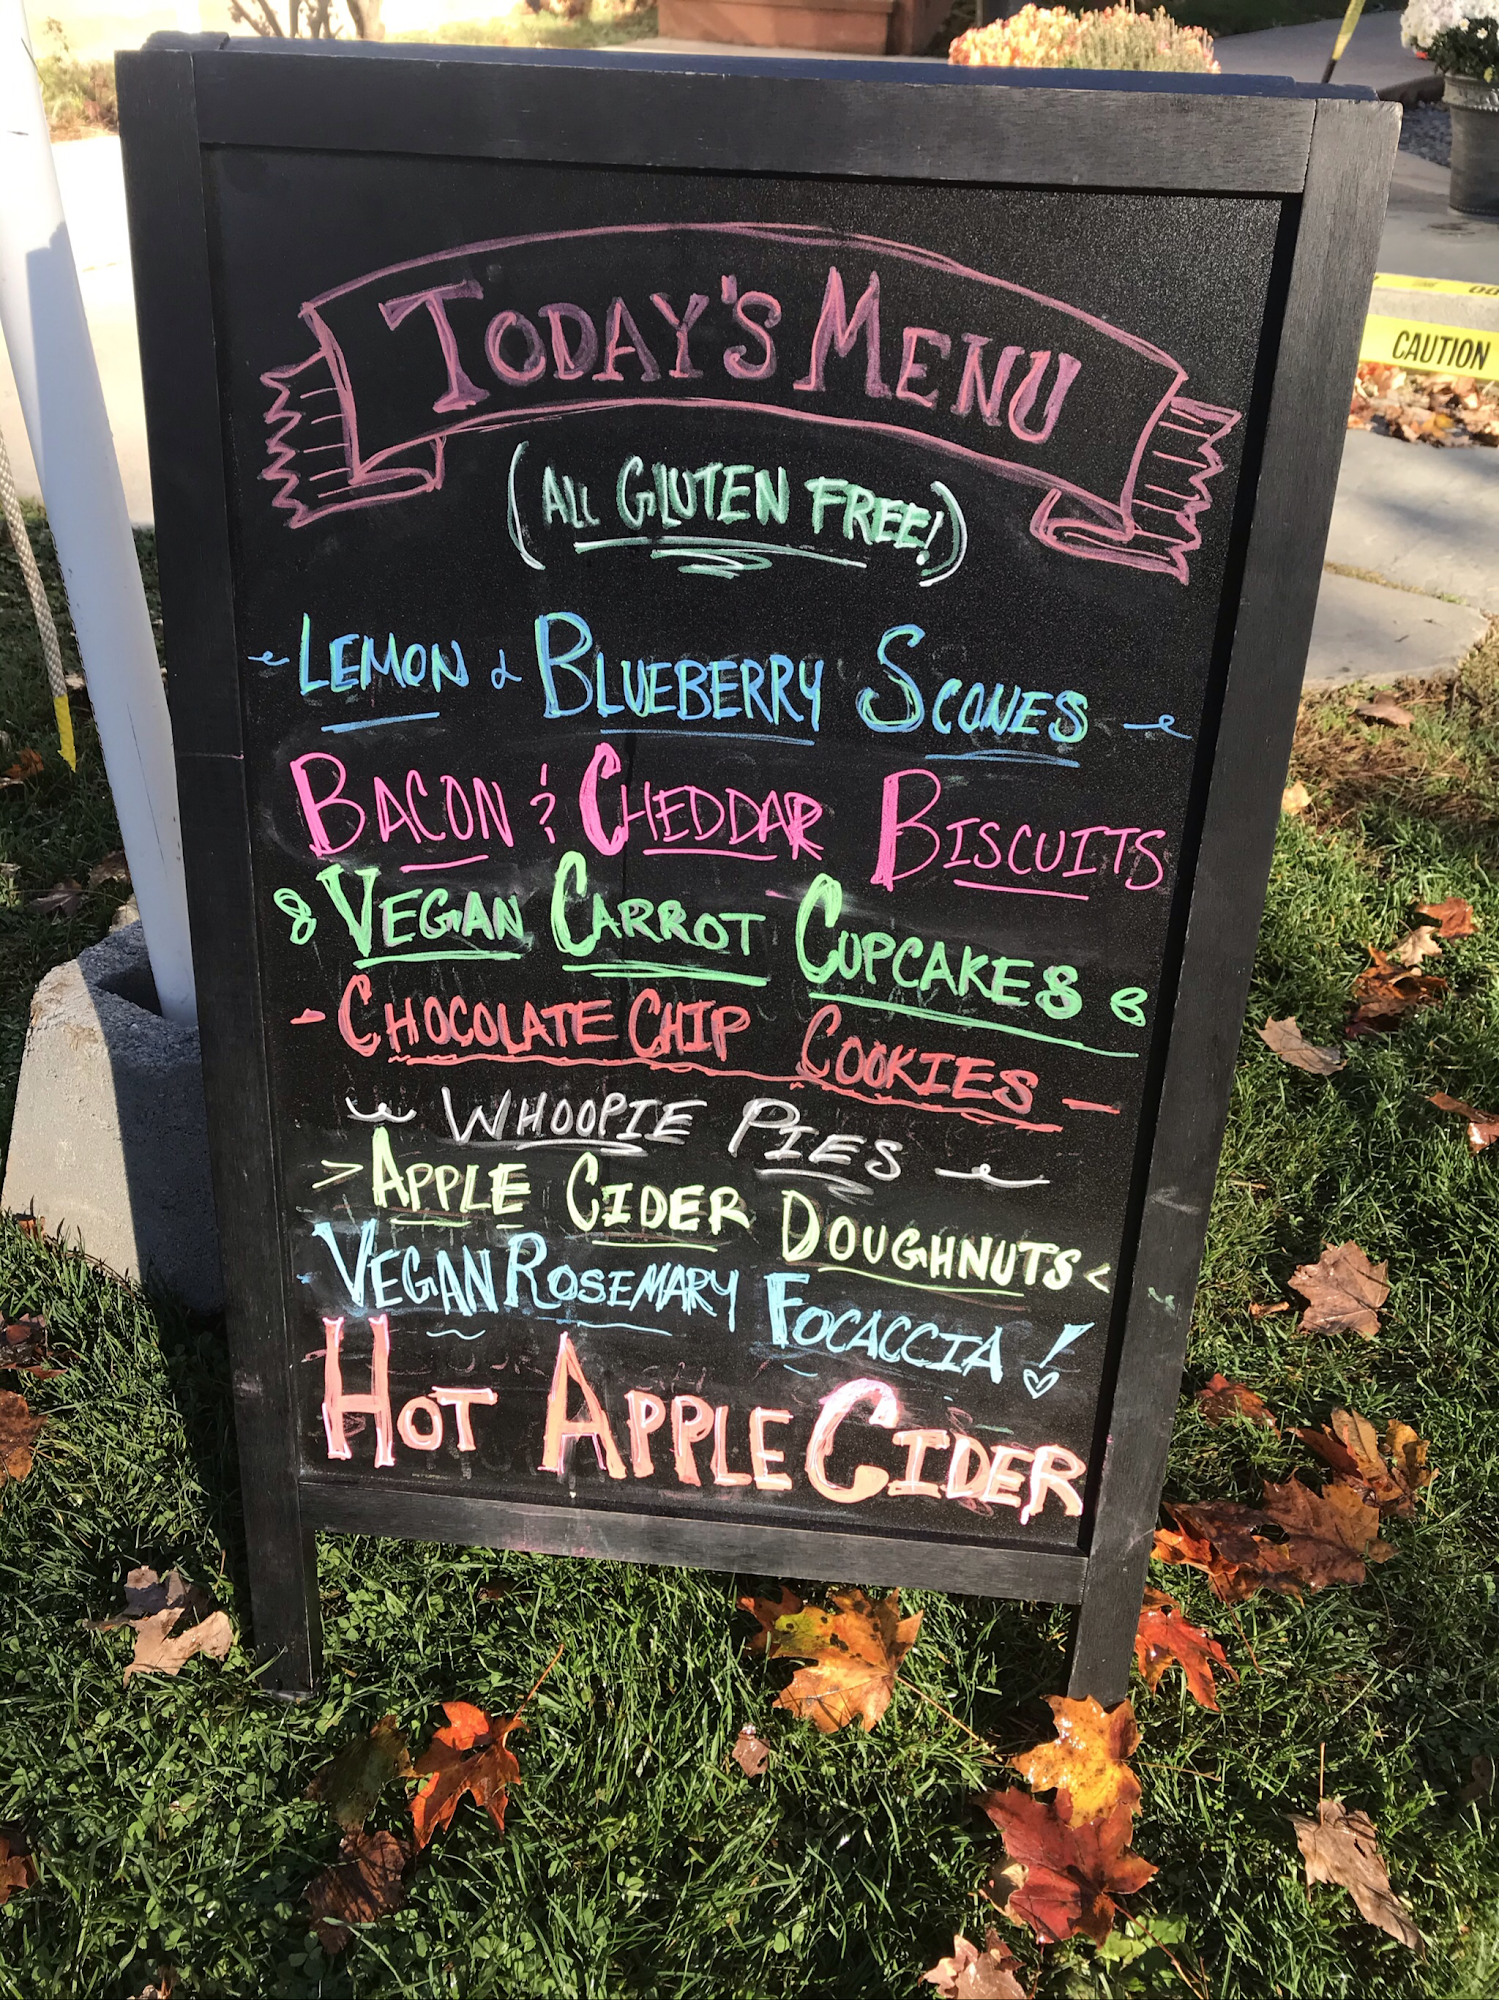 TODAY'S MENU
(ALL GLUTEN FREE!)
LEMON & BLUEBERRY SCONES
BACON & CHEDDAR BISCUITS
VEGAN CARROT CUPCAKES
- CHOCOLATE CHIP COOKIES -
WHOOPIE PIES
> APPLE CIDER DOUGHNUTS <
- VEGAN ROSEMARY FOCACCIA!
HOT APPLE CIDER
CAUTION